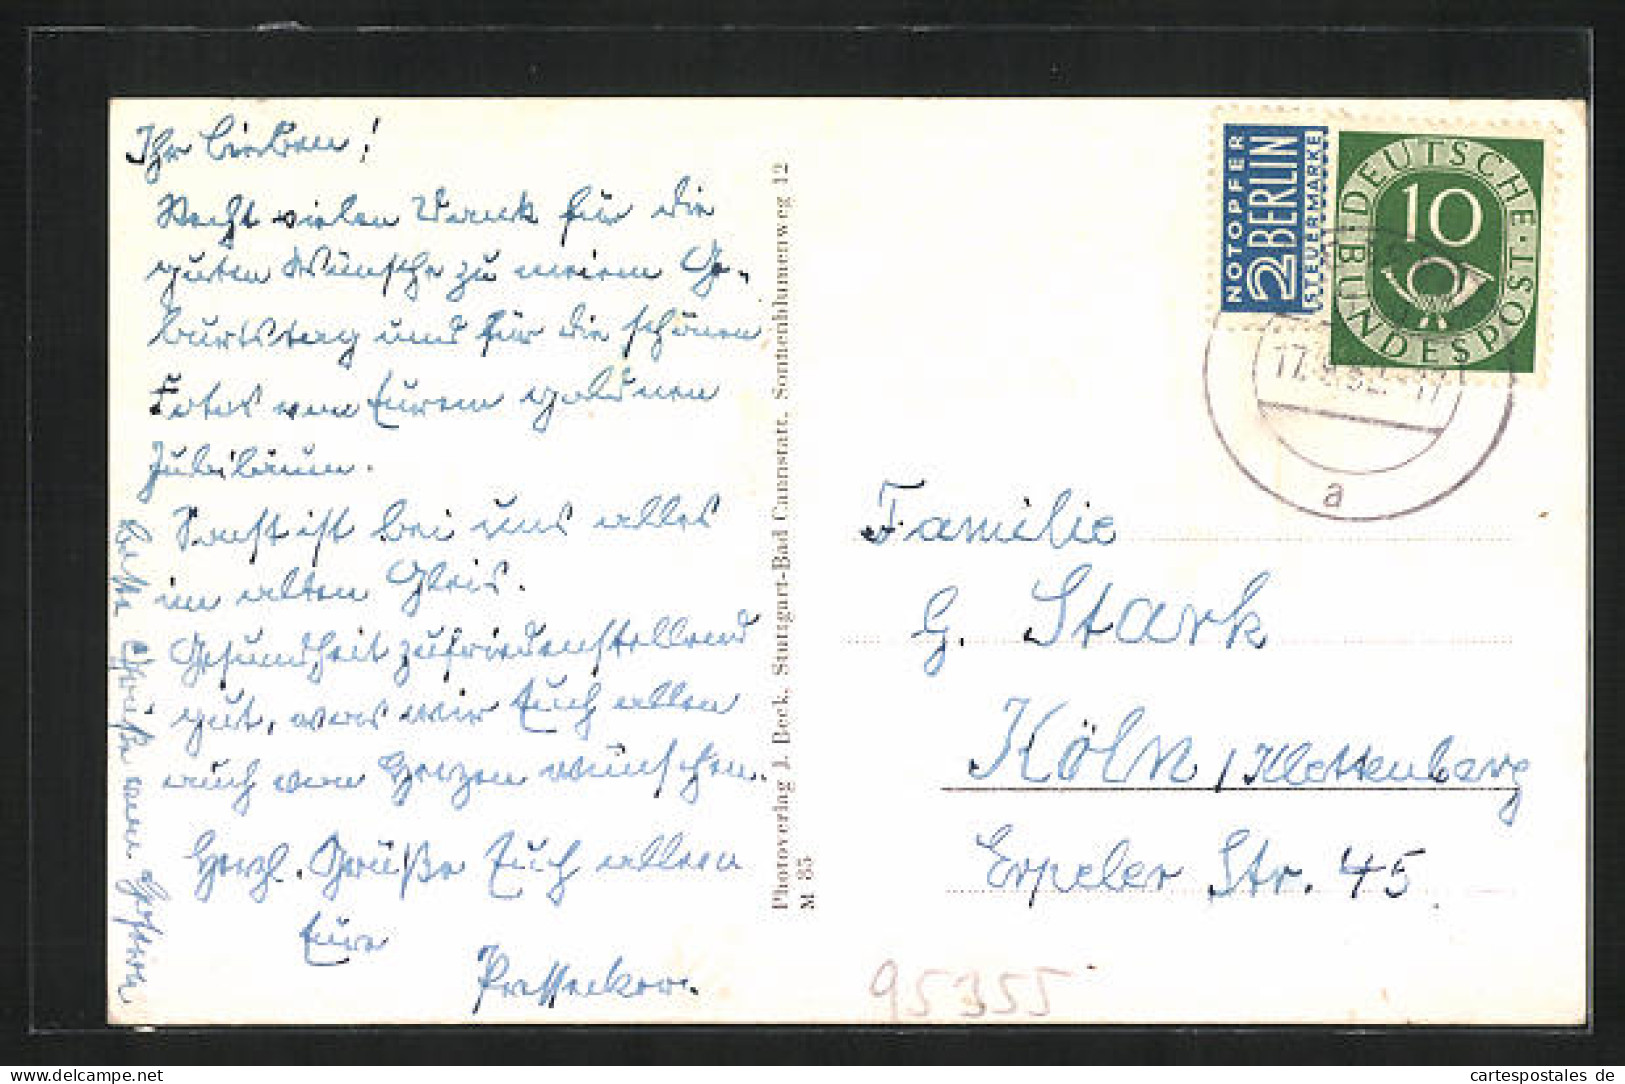 Ihr Lieben!
Recht vielen Dank für die
guten Wünsche zu meinem Ge-
burtstag und für die schönen
Fotos von Eurem goldnen
Jubiläum.
Sonst ist bei uns alles
im alten Gleis.
Gesundheit zufriedenstellend
gut, was wir Euch allen
auch von Herzen wünschen.
Herzl. Grüße Euch allen
Eure
Beste Grüße von
Photoverlag J. Beck, Stuttgart-Bad Cannstatt, Sonnenblumenweg 12
M 85
NOTOPFER
2 BERLIN
STEUERMARKE
DEUTSCHE · BUNDESPOST
10
17. 52.-17
a
Familie
G. Stark
Köln / Klettenberg
Erpeler Str. 45
95355
cartespostales de
cartespostales.de